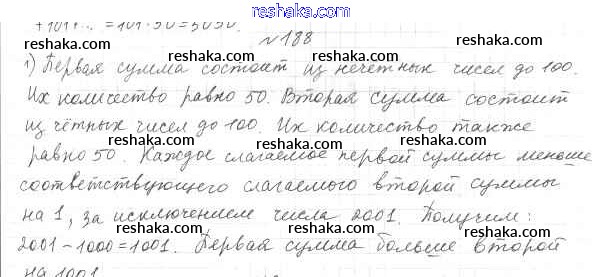 +101+... =101·50=5050.
№188
1) Первая сумма состоит из нечетных чисел до 100.
Их количество равно 50. Вторая сумма состоит
из чётных чисел до 100. Их количество также
равно 50. Каждое слагаемое первой суммы меньше
соответствующего слагаемого второй суммы
на 1, за исключением числа 2001. Получим:
2001-1000=1001. Первая сумма больше второй
на 1001.
reshaka.com
reshaka.com
reshaka.com
reshaka.com
reshaka.com
reshaka.com
reshaka.com
reshaka.com
reshaka.com
reshaka.com
reshaka.com
reshaka.com
reshaka.com